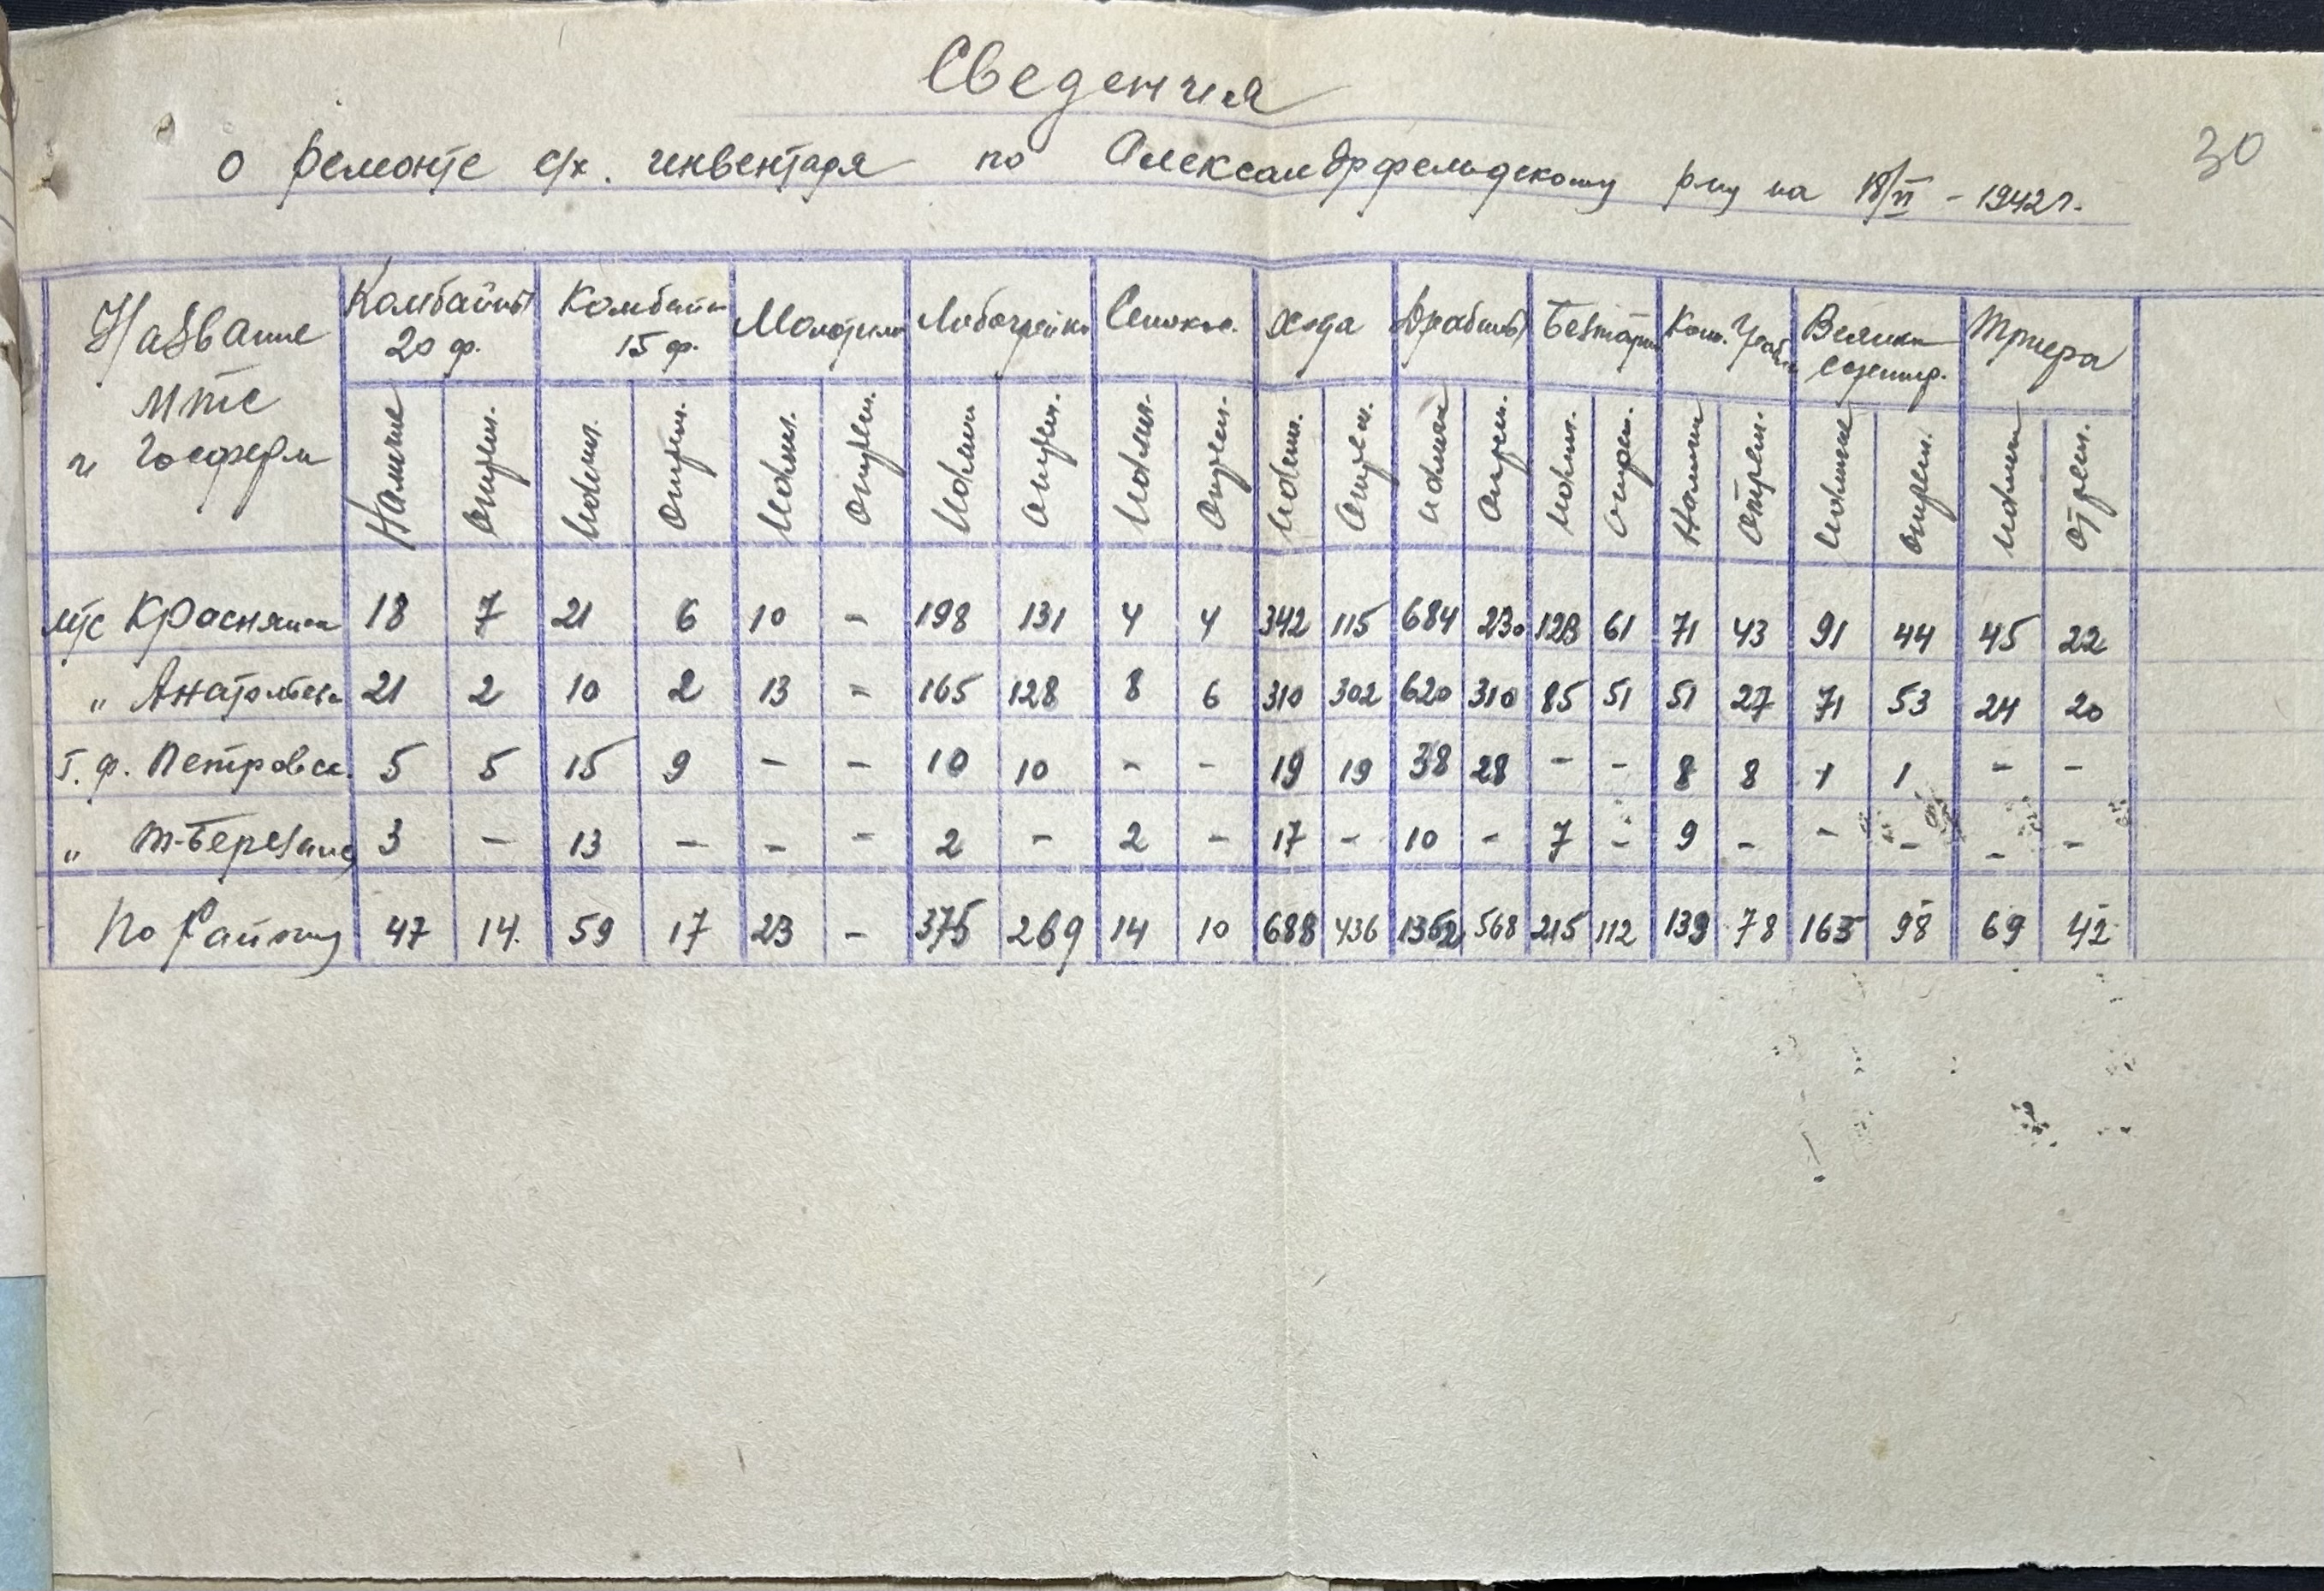 Сведения
30
о ремонте с/х. инвентаря по Александрфельдскому р-ну на 18/VI - 1942 г.
Название МТС и Госферм | Комбайны 20 ф. | Комбайн 15 ф. | Молотилк | Лобогрейки | Сенокос. | Хода | Драбины | Безтарки | Кон. Грабл | Веялки сортир. | Триера
Наличие | Отрем. | Налич. | Отрем. | Налич. | Отрем. | Налич | Отрем. | Налич. | Отрем. | Налич. | Отрем. | Налич | Отрем. | Налич. | Отрем. | Наличи | Отрем. | Наличие | Отрем. | Налич | Отрем.
МТС Краснянск | 18 | 7 | 21 | 6 | 10 | - | 198 | 131 | 4 | 4 | 342 | 115 | 684 | 230 | 123 | 61 | 71 | 43 | 91 | 44 | 45 | 22
" Анатольевк | 21 | 2 | 10 | 2 | 13 | - | 165 | 128 | 8 | 6 | 310 | 302 | 620 | 310 | 85 | 51 | 51 | 27 | 71 | 53 | 24 | 20
Г. ф. Петровск. | 5 | 5 | 15 | 9 | - | - | 10 | 10 | - | - | 19 | 19 | 38 | 28 | - | - | 8 | 8 | 1 | 1 | - | -
" Т-Березань | 3 | - | 13 | - | - | - | 2 | - | 2 | - | 17 | - | 10 | - | 7 | - | 9 | - | - | - | - | -
По Району | 47 | 14. | 59 | 17 | 23 | - | 375 | 269 | 14 | 10 | 688 | 436 | 1352 | 568 | 215 | 112 | 139 | 78 | 163 | 98 | 69 | 42